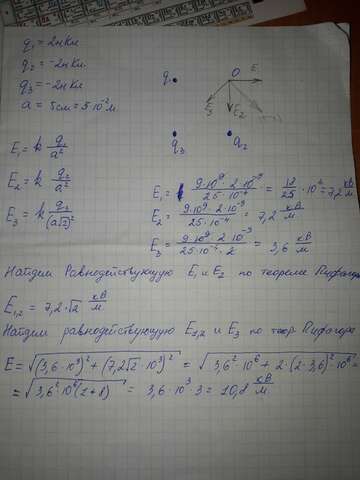 q₁ = 2нКл
q₂ = -2нКл
q₃ = -2нКл
a = 5см = 5·10⁻²м
q₁
O
E₁
E₂
E₃
q₃
q₂
E₁ = k q₁/a²
E₂ = k q₂/a²
E₃ = k q₃/(a√2)²
E₁ = 9·10⁹·2·10⁻⁹/25·10⁻⁴ = 18/25·10⁴ = 7,2 кВ/м
E₂ = 9·10⁹·2·10⁻⁹/25·10⁻⁴ = 7,2 кВ/м
E₃ = 9·10⁹·2·10⁻⁹/25·10⁻⁴·2 = 3,6 кВ/м
Найдем Равнодействующую E₁ и E₂ по теореме Пифагора
E₁,₂ = 7,2·√2 кВ/м
Найдем равнодействующую E₁,₂ и E₃ по теор Пифагора
E = √((3,6·10³)² + (7,2√2·10³)²) = √(3,6²·10⁶ + 2·(2·3,6)²·10⁶) =
= √(3,6²·10⁶(1+8)) = 3,6·10³·3 = 10,8 кВ/м